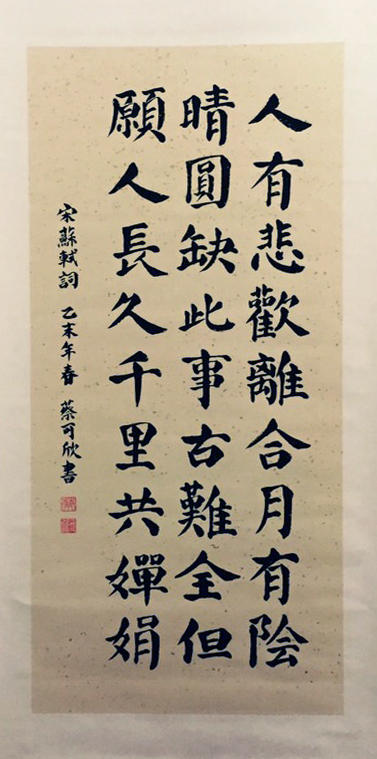 人有悲歡離合月有陰
晴圓缺此事古難全但
願人長久千里共嬋娟
宋蘇軾詞 乙未年春 蔡可欣書